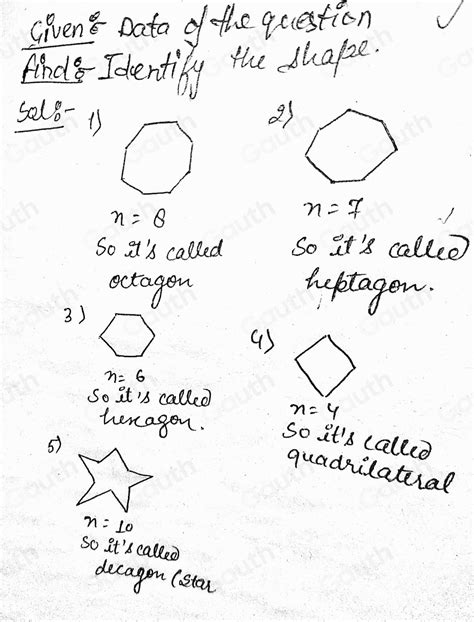 Given:- Data of the question
Find:- Identify the shape.
Sol:-
1)
n = 8
So it's called
octagon
2)
n = 7
So it's called
heptagon.
3)
n = 6
So it's called
hexagon.
4)
n = 4
So it's called
quadrilateral
5)
n = 10
So it's called
decagon (star
Gauth